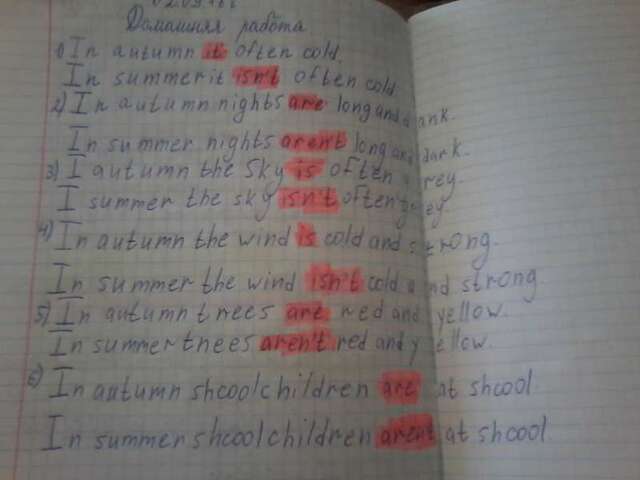 Домашняя работа
1) In autumn it often cold.
In summer it isn't often cold
2) In autumn nights are long and dank.
In summer nights aren't long and dark.
3) I autumn the sky is often grey.
I summer the sky isn't often grey.
4) In autumn the wind is cold and strong.
In summer the wind isn't cold and strong.
5) In autumn trees are red and yellow.
In summer tnees aren't red and yellow.
6) In autumn shcoolchildren are at shcool
In summer shcoolchildren arent at shcool